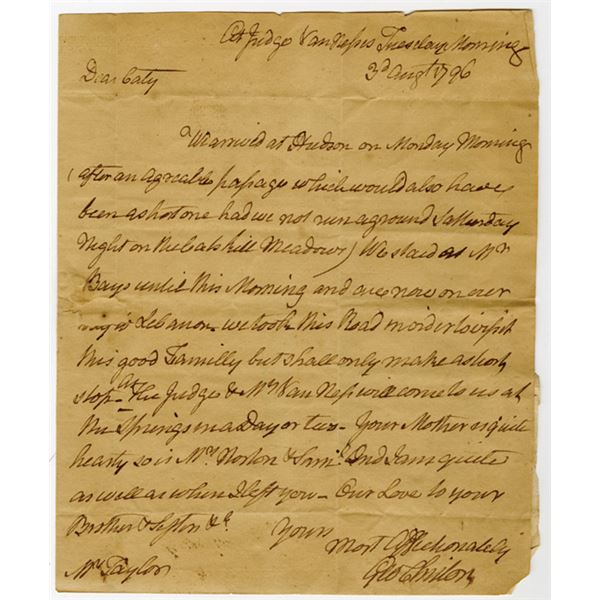 At Judge VanNess's Tuesday Morning
3d Augt 1796
Dear Caty
We arrived at Hudson on Monday Morning
(after an agreable passage which would also have
been a short one had we not run aground Satturday
Night on the Catskill Meadows) We staid at Mr
Bays until this Morning and are now on our
way to Lebanon - we took this Road in order to visit
this good Familly but shall only make a short
stop - The Judge & Mrs Van Ness will come to us at
the Springs in a Day or two - Your Mother is quite
hearty so is Mrs Norton & And I am quite
as well as when I left you - Our Love to your
Brother & Sister &c
Yours
Most Affectionately
Geo Clinton
Mrs Taylor